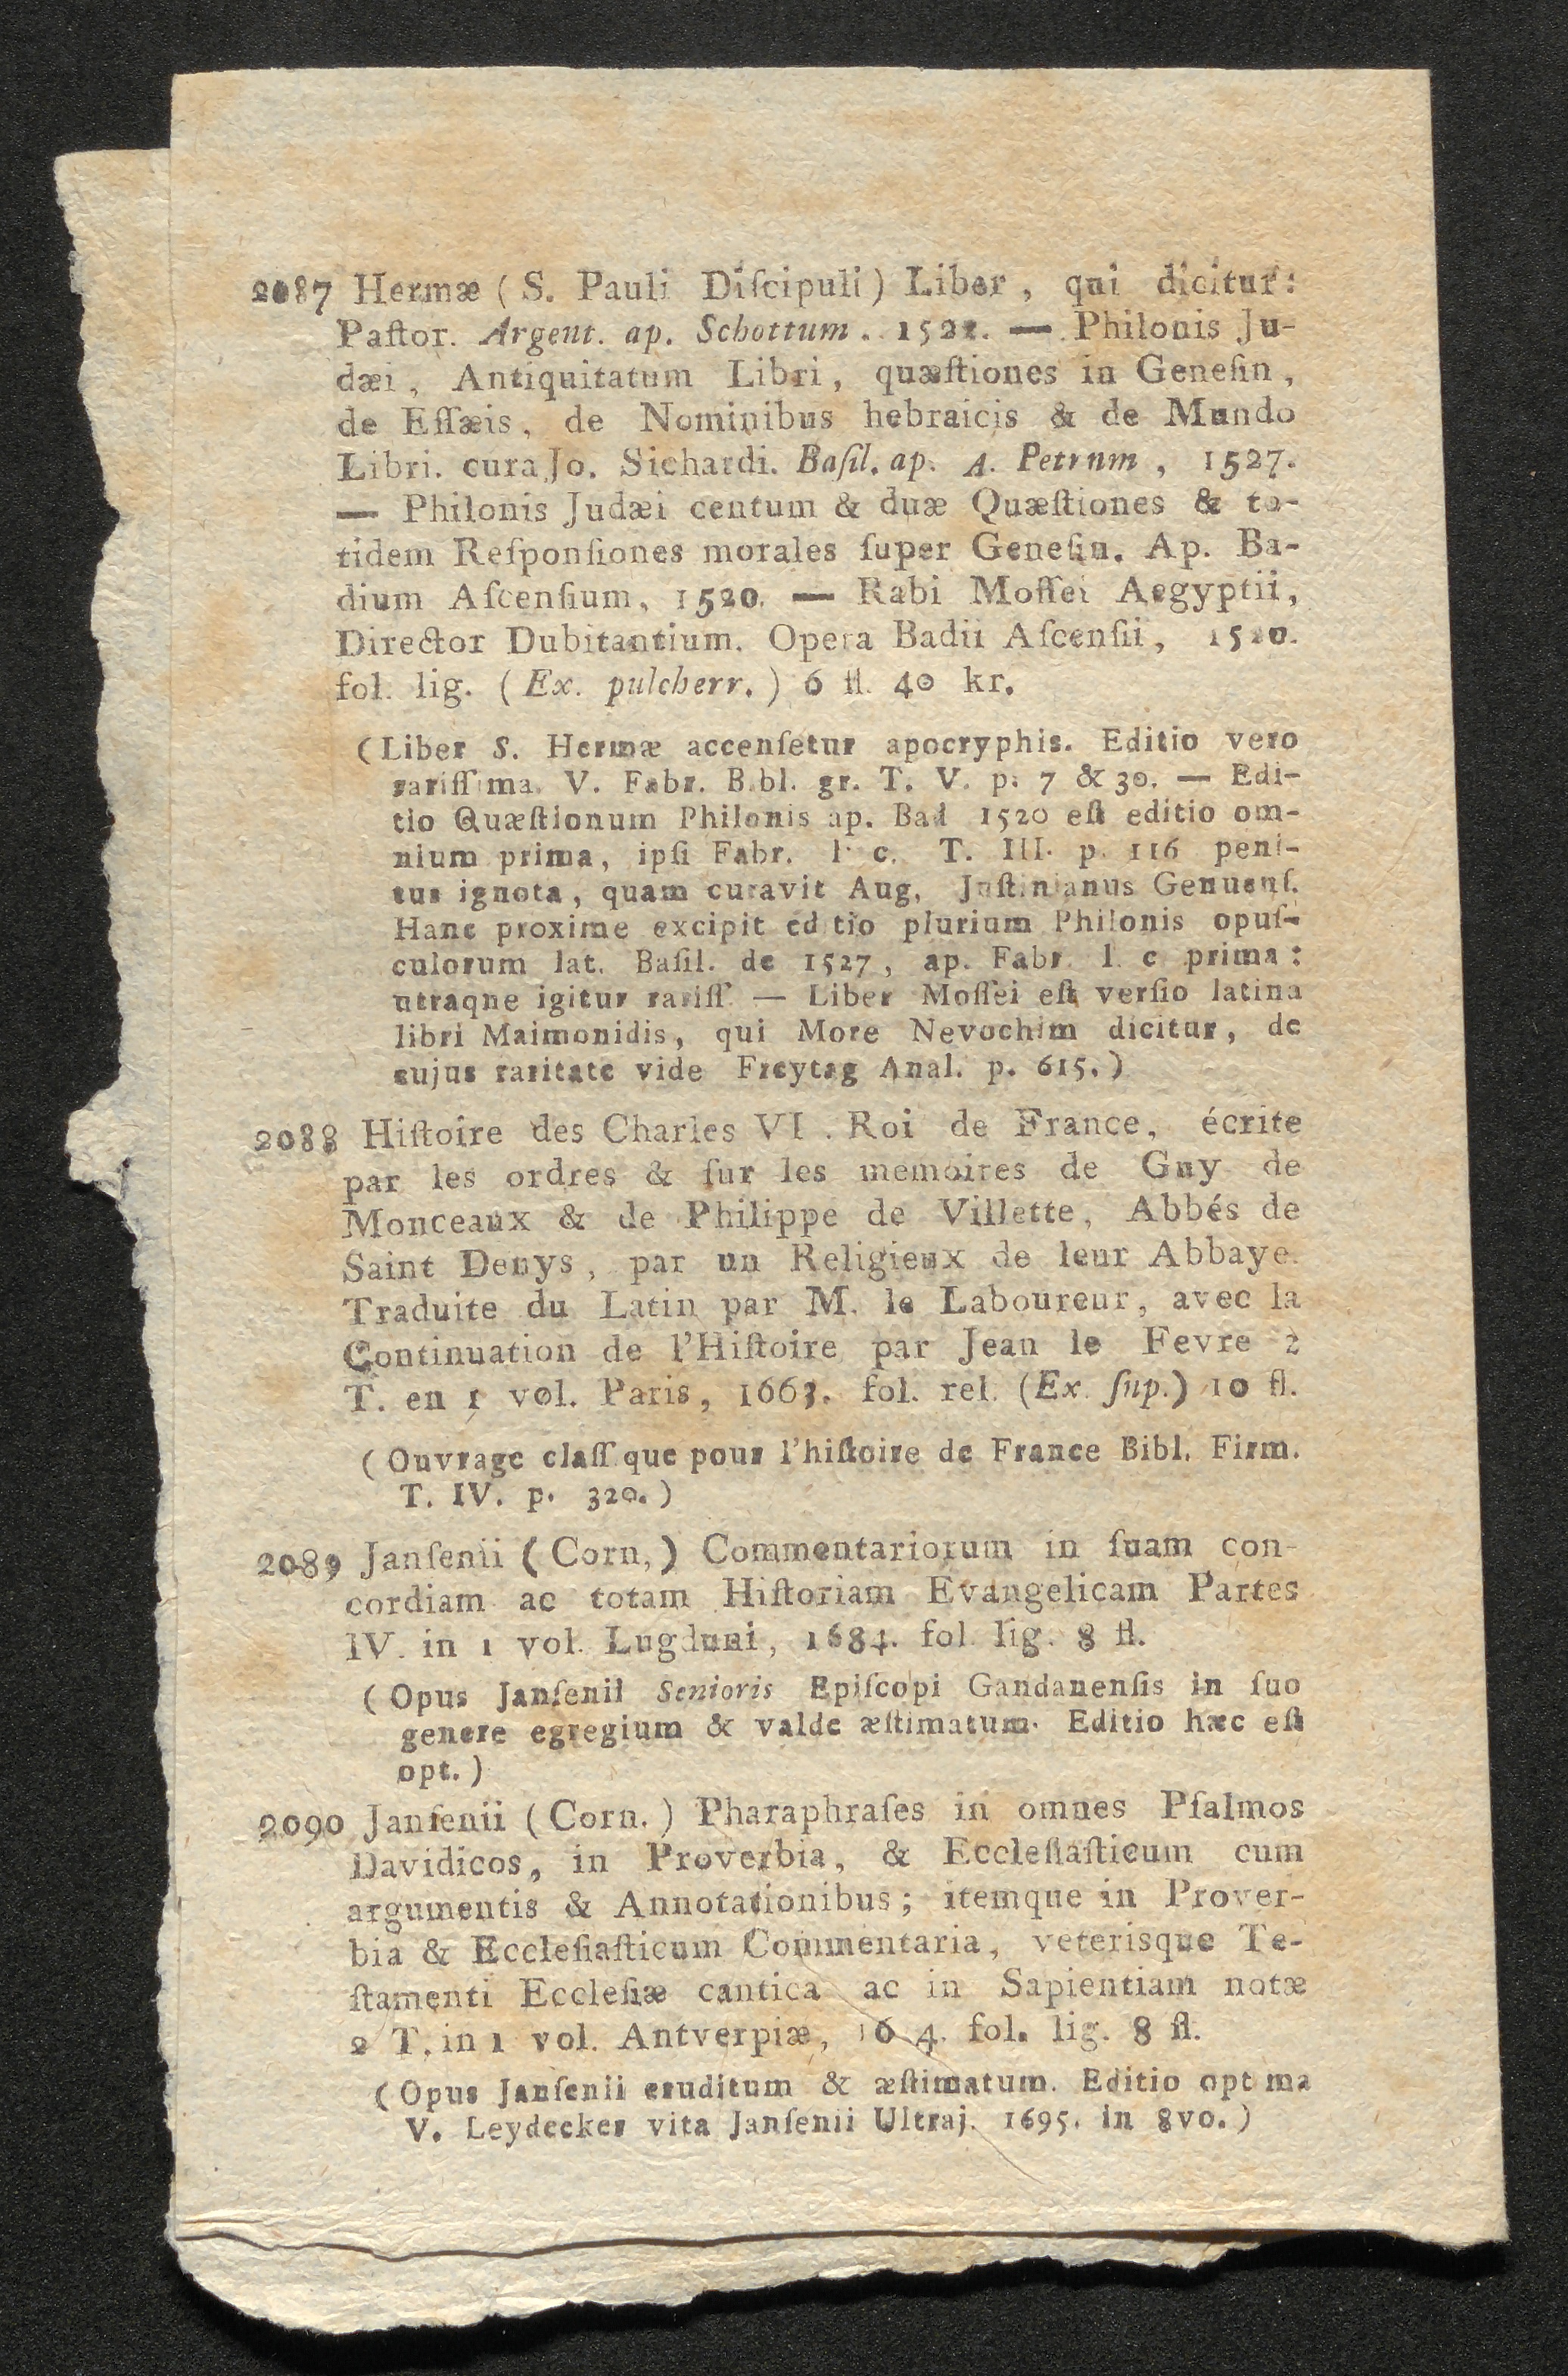 2087 Hermæ ( S. Pauli Diſcipuli ) Liber , qui dicitur :
Paſtor. Argent. ap. Schottum . 1522. — Philonis Ju-
dæi , Antiquitatum Libri , quæſtiones in Geneſin ,
de Eſſæis , de Nominibus hebraicis & de Mundo
Libri. cura Jo. Sichardi. Baſil. ap. A. Petrum , 1527.
— Philonis Judæi centum & duæ Quæſtiones & to-
tidem Reſponſiones morales ſuper Geneſin. Ap. Ba-
dium Aſcenſium , 1520. — Rabi Moſſei Aegyptii ,
Director Dubitantium. Opera Badii Aſcenſii , 1520.
fol. lig. ( Ex. pulcherr. ) 6 fl. 40 kr.
( Liber S. Hermæ accenſetur apocryphis. Editio vero
rariſſima. V. Fabr. Bibl. gr. T. V. p. 7 & 30. — Edi-
tio Quæſtionum Philonis ap. Bad 1520 eſt editio om-
nium prima , ipſi Fabr. l. c. T. III. p. 116 peni-
tus ignota , quam curavit Aug. Juſtinianus Genuenſ.
Hanc proxime excipit editio plurium Philonis opuſ-
culorum lat. Baſil. de 1527 , ap. Fabr. l. c prima :
utraqne igitur rariſſ. — Liber Moſſei eſt verſio latina
libri Maimonidis , qui More Nevochim dicitur , de
cujus raritate vide Freytag Anal. p. 615. )
2088 Hiſtoire des Charles VI . Roi de France , écrite
par les ordres & ſur les memoires de Guy de
Monceaux & de Philippe de Villette , Abbés de
Saint Denys , par un Religieux de leur Abbaye.
Traduite du Latin par M. le Laboureur , avec la
Continuation de l'Hiſtoire par Jean le Fevre 2
T. en 1 vol. Paris , 1663. fol. rel. (Ex. ſup.) 10 fl.
( Ouvrage claſſique pour l'hiſtoire de France Bibl. Firm.
T. IV. p. 320. )
2089 Janſenii ( Corn, ) Commentariorum in ſuam con-
cordiam ac totam Hiſtoriam Evangelicam Partes
IV. in 1 vol. Lugduni , 1684. fol. lig. 8 fl.
( Opus Janſenii Senioris Epiſcopi Gandanenſis in ſuo
genere egregium & valde æſtimatum. Editio hæc eſt
opt. )
2090 Janſenii ( Corn. ) Pharaphraſes in omnes Pſalmos
Davidicos , in Proverbia , & Eccleſiaſticum cum
argumentis & Annotationibus ; itemque in Prover-
bia & Eccleſiaſticum Commentaria , veterisque Te-
ſtamenti Eccleſiæ cantica ac in Sapientiam notæ
2 T. in 1 vol. Antverpiæ , fol. lig. 8 fl.
( Opus Janſenii eruditum & æſtimatum. Editio optima
V. Leydecker vita Janſenii Ultraj. 1695. in 8vo. )